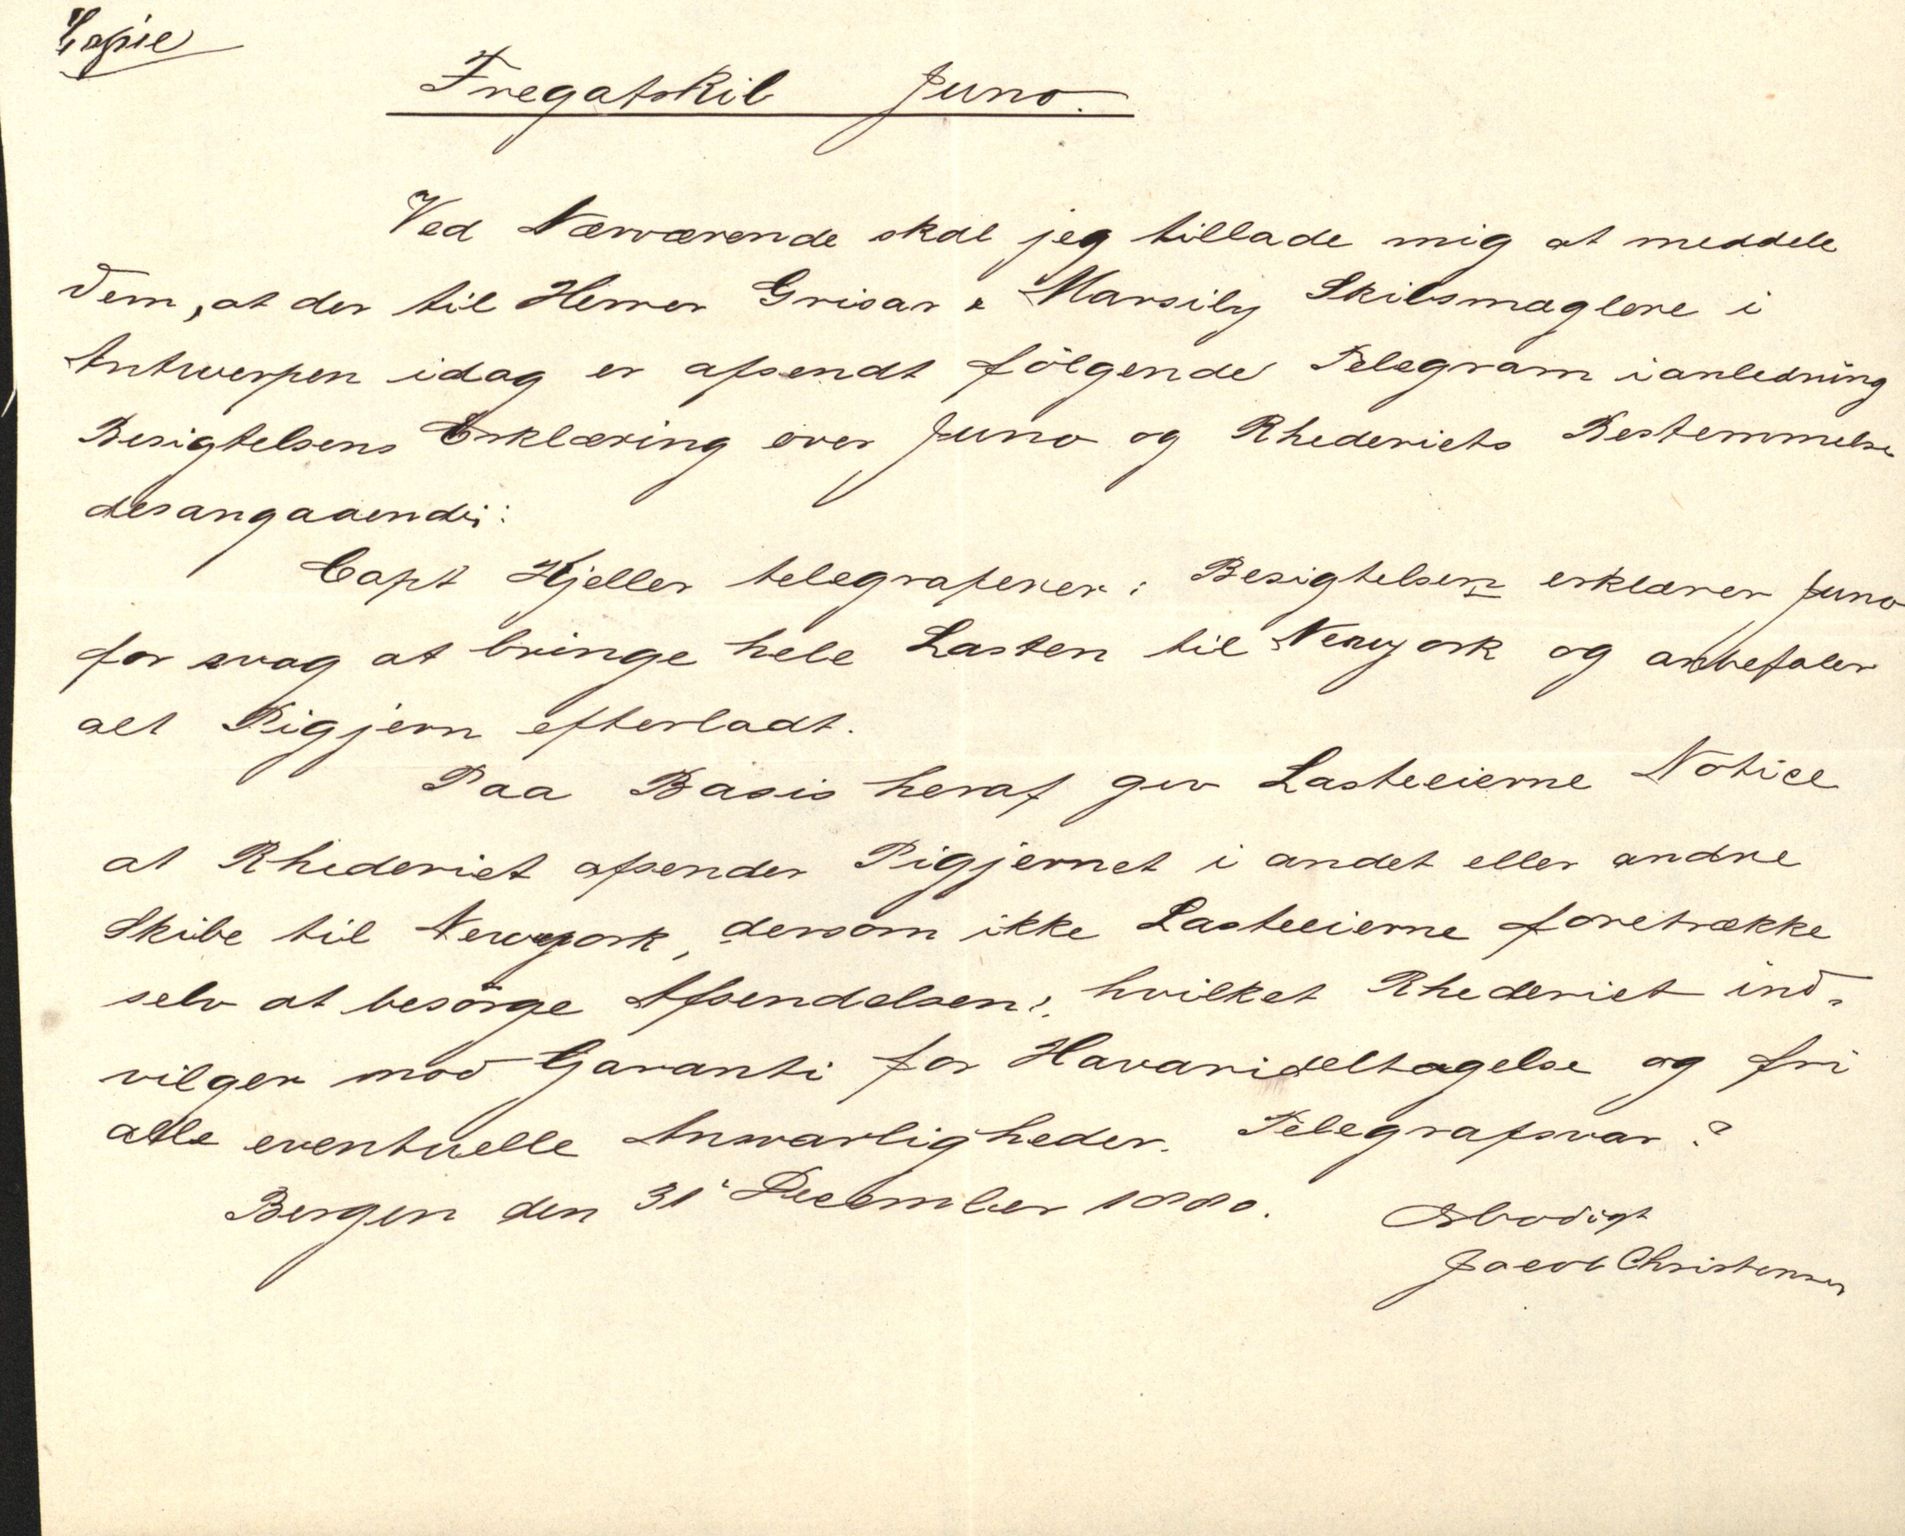 Copie
Fregatskib Juno.
Ved Nærværende skal jeg tillade mig at meddele
Dem, at der til Herrer Grisar & Marsily Skibsmæglere i
Antwerpen idag er afsendt fölgende Telegram ianledning
Besigtelsens Erklæring over Juno og Rhederiets Bestemmelse
desangaaende:
Capt Kjeller telegraferer: Besigtelsen erklærer Juno
for svag at bringe hele Lasten til Newyork og anbefaler
alt Pigjern efterladt.
Paa Basis heraf giv Lasteeierne Notice
at Rhederiet afsender Pigjernet i andet eller andre
Skibe til Newyork, dersom ikke Lasteeierne foretrække
selv at besörge Afsendelsen, hvilket Rhederiet ind-
vilger mod Garanti for Havarideltagelse og fri
alle eventuelle Ansvarligheder. Telegrafsvar?
Bergen den 31 December 1880.
Ærbödigt
Jacob Christensen